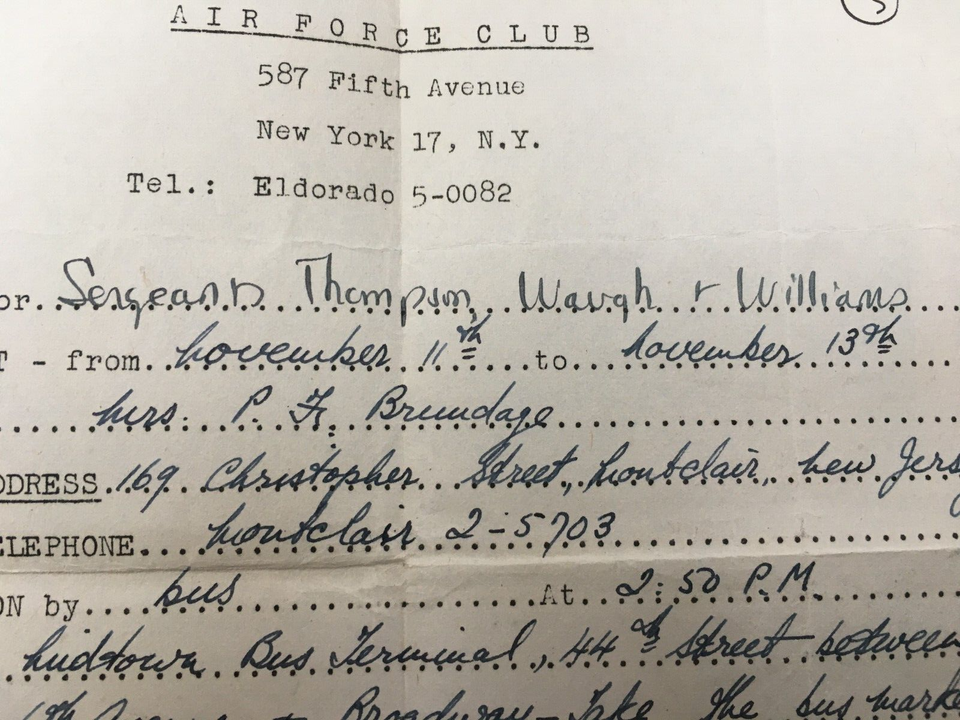 AIR FORCE CLUB
587 Fifth Avenue
New York 17, N.Y.
Tel.: Eldorado 5-0082
or. Sergeants Thompson, Waugh + Williams
T - from November 11th to November 13th
Mrs. P. F. Brundage
DDRESS 169 Christopher Street, Montclair, New Jers
ELEPHONE Montclair 2-5703
ON by bus At 2:50 P.M.
Midtown Bus Terminal, 44th Street between
Broadway - Take the bus marke